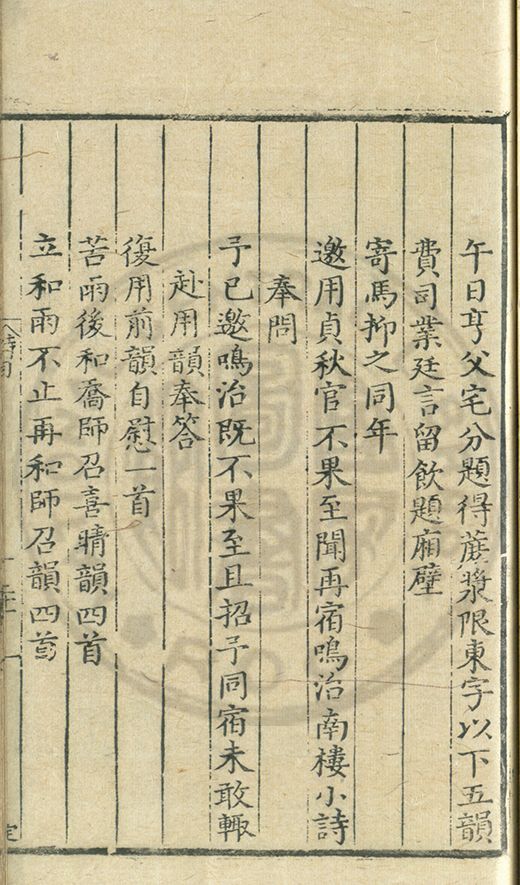 午日亨父宅分題得蔗漿限東字以下五韻
費司業廷言留飲題廂壁
寄馬抑之同年
邀用貞秋官不果至聞再宿鳴治南樓小詩
奉問
予已邀鳴治既不果至且招予同宿未敢輙
赴用韻奉答
復用前韻自慰一首
苦雨後和喬師召喜晴韻四首
立和雨不止再和師召韻四首